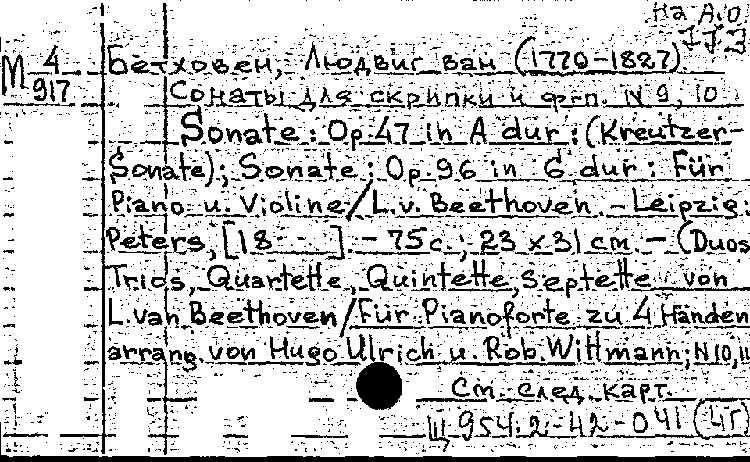 На А.О.
M 4
917
Бетховен, Людвиг ван (1770-1827).
Сонаты для скрипки и ф-п. N 9, 10
Sonate: Op.47 in A dur: (Kreutzer-
Sonate); Sonate: Op.96 in G dur: Für
Piano u. Violine/L.v. Beethoven. - Leipzig:
Peters, [18--]. - 75 с.; 23 x 31 см. - (Duos
Trios, Quartette, Quintette, Septette von
L. van Beethoven/Für Pianoforte zu 4 Händen
arrang. von Hugo Ulrich u. Rob. Wittmann; N 10, 11
См. след. карт.
Щ 954.2-42-041 (4Г)